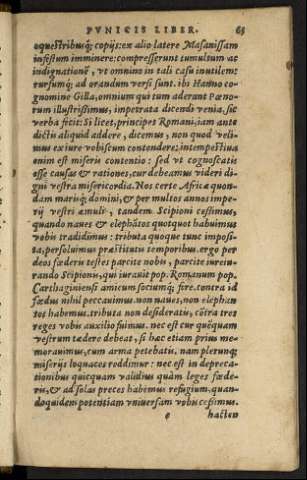 PVNICIS LIBER. 65
oquestribusq́; copijs: ex alio latere Masanissam
infestum imminere: compresserunt tumultum ac
indignationẽ, vt omnino in tali casu inutilem:
rursumq́; ad orandum versi sunt. ibi Hanno co-
gnomine Gilla, omnium qui tum aderant Pœno-
rum illustrißimus, impetrata dicendi venia, sic
verba fecit: Si licet, principes Romani, iam ante
dictis aliquid addere, dicemus, non quod veli-
mus ex iure vobiscum contendere: intempestiua
enim est miseris contentio: sed vt cognoscatis
esse causas & rationes, cur debeamus videri di-
gni vestra misericordia. Nos certe Africæ quon-
dam marisq́; domini, & per multos annos impe-
rij vestri æmuli, tandem Scipioni ceßimus,
quando naues & elephãtos quotquot habuimus
vobis tradidimus: tributa quoque tunc imposi-
ta, persoluimus præstitutis temporibus. ergo per
deos fœderis testes parcite nobis, parcite iureiu-
rando Scipionis, qui iurauit pop. Romanum pop.
Carthaginiensis amicum sociumq́; fore. contra id
fœdus nihil peccauimus. non naues, non elephan
tos habemus. tributa non desiderãtis, cõtra tres
reges vobis auxilio fuimus. nec est cur quẽquam
vestrum tædere debeat, si hæc etiam prius me-
morauimus, cum arma petebatis. nam plerunq́;
miserijs loquaces redduntur: nec est in depreca-
tionibus quicquam validius quàm leges fœde-
ris, & ad solas preces habemus refugium, quan-
doquidem potentiam vniuersam vobis ceßimus.
e hacten